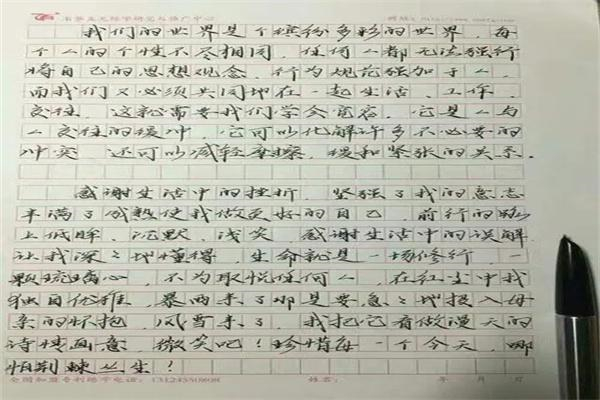 我们的世界是个缤纷多彩的世界，每
个人的个性不尽相同，任何人都无法强行
将自己的思想观念，行为规范强加于人，
而我们又必须共同地在一起生活、工作、
交往，这就需要我们学会宽容，它是人与
人交往的缓冲，它可以化解许多不必要的
冲突，还可以减轻摩擦，缓和紧张的关系．
感谢生活中的挫折，坚强了我的意志
丰满了成熟使我做更好的自己，前行的路
上低眸，沉默，浅笑，感谢生活中的误解，
让我深深地懂得，生命就是一场修行，一
颗琉璃心，不为取悦任何人，在红尘中我
独自优雅，暴雨来了那是要急急地投入母
亲的怀抱，风雪来了，我把它看做漫天的
诗情画意，微笑吧！珍惜每一个今天，哪
怕荆棘丛生？
全国加盟专利练字电话： 姓名： 年 月 日